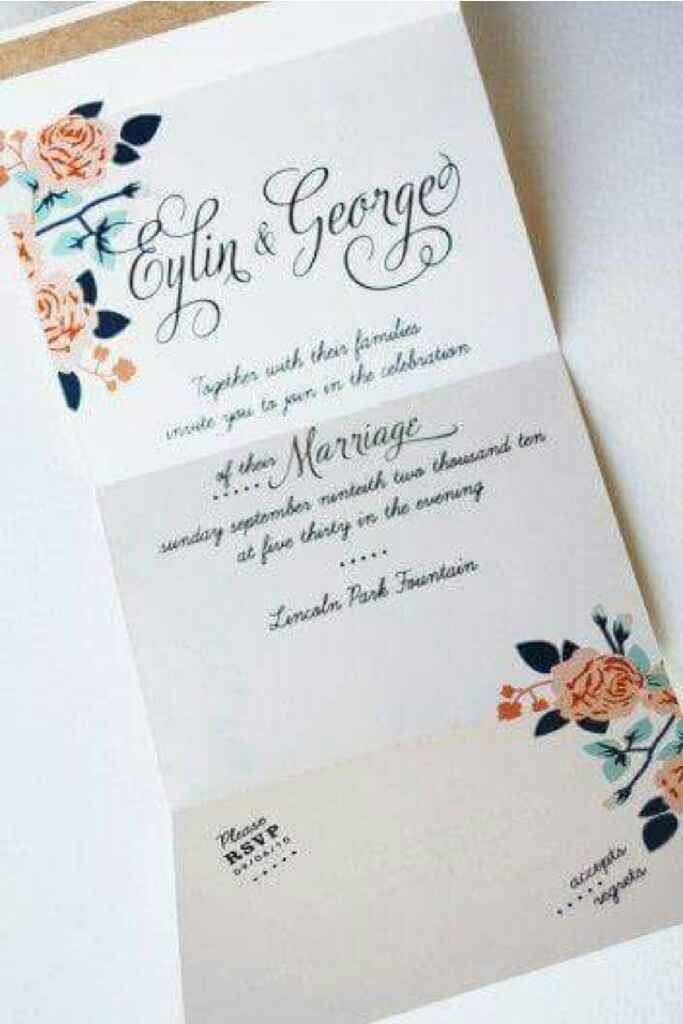 Eylin & George
Together with their families
invite you to join in the celebration
of their Marriage
sunday september ninteith two thousand ten
at five thirty in the evening
Lincoln Park Fountain
Please
RSVP
09/06/10
accepts
regrets